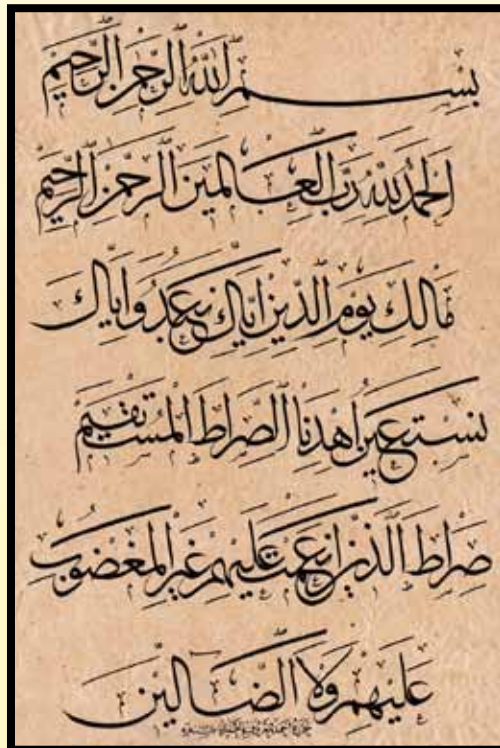 بِسْمِ اللّٰهِ الرَّحْمٰنِ الرَّحِيْمِ
اَلْحَمْدُ لِلّٰهِ رَبِّ الْعَالَمِيْنَ اَلرَّحْمٰنِ الرَّحِيْمِ
مَالِكِ يَوْمِ الدِّيْنِ اِيَّاكَ نَعْبُدُ وَاِيَّاكَ
نَسْتَعِيْنُ اِهْدِنَا الصِّرَاطَ الْمُسْتَقِيْمَ
صِرَاطَ الَّذِيْنَ اَنْعَمْتَ عَلَيْهِمْ غَيْرِ الْمَغْضُوْبِ
عَلَيْهِمْ وَلَا الضَّآلِّيْنَ